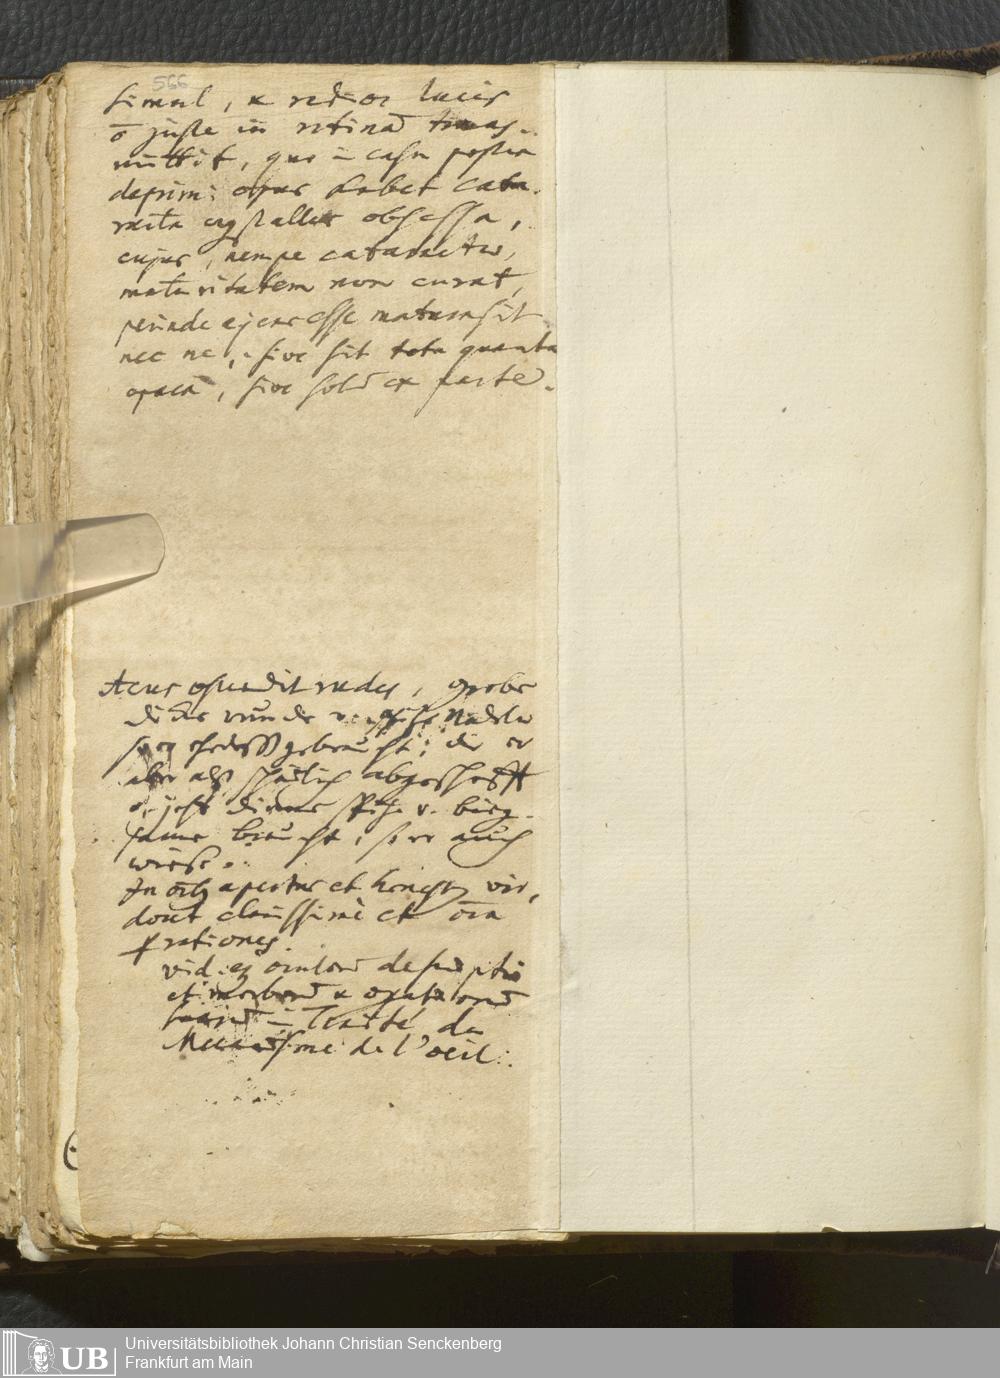 566
simul, & radios lucis
õ juste in retinã trans-
mittit, quo in casu postea
deprimi opus habet cata-
racta crystallus obsessa,
cujus, nempe cataractae,
maturitatem non curat,
perinde ejus esse maturasit
nec ne, sive sit tota quanta
opaca, sive solũ ex parte.
Acus ostendit rudes, grobe
dicke runde Nadeln
gebraucht; die er
aber als schädlich abgeschafft
u. jezt dünne spize v. bieg-
same braucht, so er auch
wiese.
In oib apertus et honest vir,
docet clarissime et oia
p rationes.
vid. ej oculorũ
et morborũ & operationũ
Traité du
Mecanisme de l'oeil.
UB Universitätsbibliothek Johann Christian Senckenberg
Frankfurt am Main